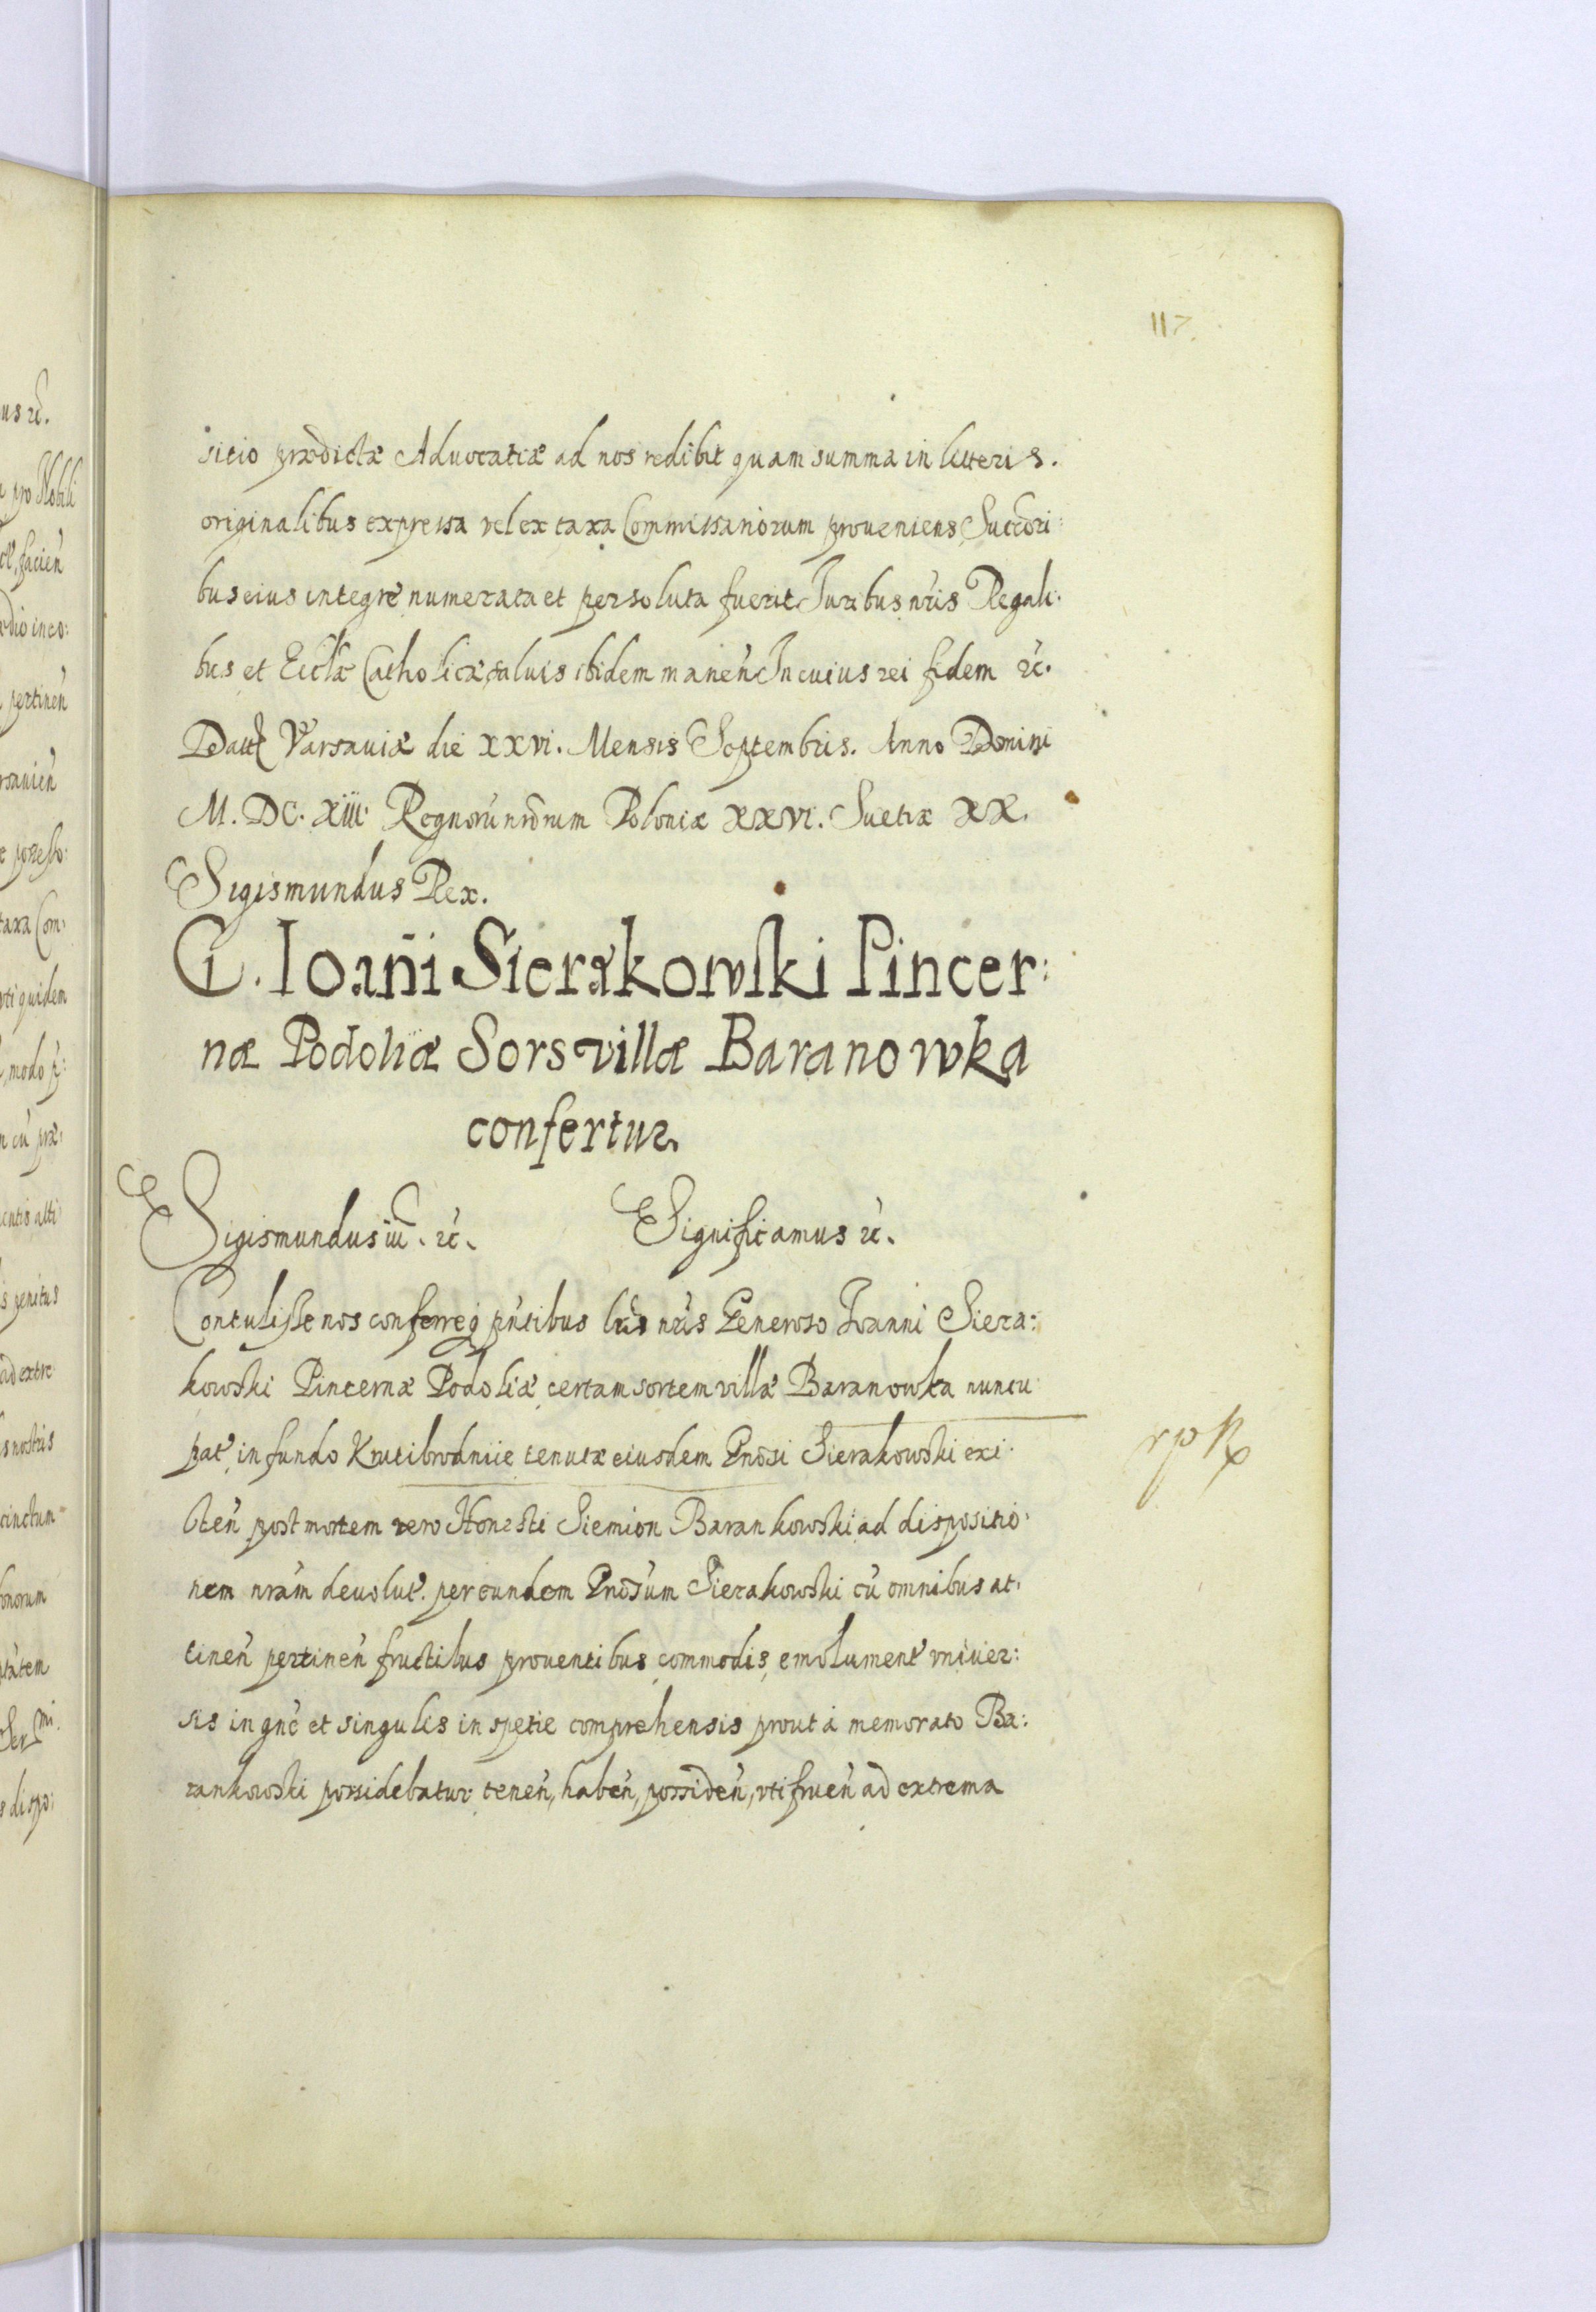 117.
sitio prædictæ Aduocatiæ ad nos redibit quam summa in litteris.
originalibus expressa vel ex taxa Commissariorum proueniens, Succori:
bus eius integrè numerata et persoluta fuerit Juribus nr̃is Regali:
bus et Ecclæ Catholicæ saluis ibidem manen̄ In cuius rei fidem ꝛc.
Datt Varsauiæ die XXVI. Mensis Septembris. Anno Domini
M. DC. XIII. Regnorū nr̄orum Poloniæ XXVI. Suetiæ XX.
Sigismundus Rex.
G. Ioañi Sierakowski Pincer:
næ Podoliæ Sors villæ Baranowka
confertur.
Sigismundus iii. ꝛc. Significamus ꝛc.
Contulisse nos conferreq pn̄tibus lr̄is nr̄is Generoso Ioanni Siera:
kowski Pincernæ Podoliæ certam sortem villæ Baranowka nuncu:
pat in fundo Krutibrodniie tenutæ eiusdem Gnōsi Sierakowski exi:
sten̄ post mortem vero Honesti Siemion Barankowski ad dispositio:
nem nr̄am deuolut. per eundem Gnōsum Sierakowski cū omnibus at:
tinen̄ pertinen̄ fructibus prouentibus commodis emolument vniuer:
sis in gn̄e et singulis in spetie comprehensis prout à memorato Ba:
rankowski possidebatur tenen̄, haben̄, possiden̄, vtifruen̄ ad extrema